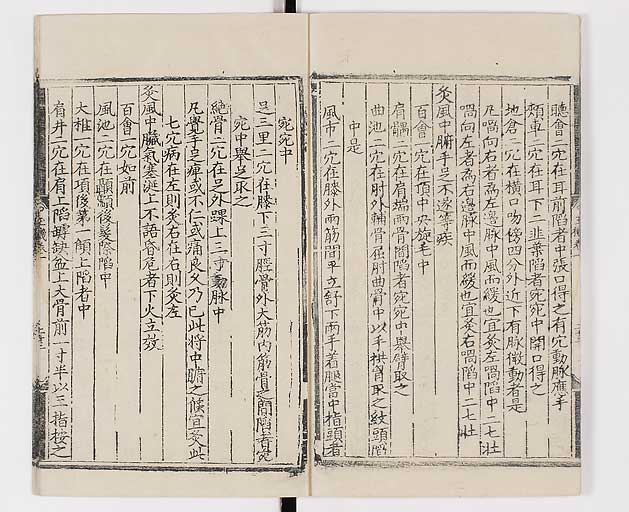 聽會二穴在耳前陷者中張口得之有穴動脉應手
頰車二穴在耳下二韭葉陷者宛宛中開口得之
地倉二穴在橫口吻傍四分外近下有脉微動者是
凡喎向右者為左邊脉中風而緩也宜灸左喎陷中二七壯
喎向左者為右邊脉中風而緩也宜灸右喎陷中二七壯
灸風中腑手足不遂等疾
百會一穴在頂中央旋毛中
肩髃二穴在肩端兩骨間陷者宛宛中舉臂取之
曲池二穴在肘外輔骨屈肘曲骨中以手拱胷取之紋頭陷
中是
風市二穴在膝外兩筋間平立舒下兩手着腿當中指頭者
宛宛中
足三里二穴在膝下三寸胻骨外大筋內筋骨之間陷者宛
宛中舉足取之
絶骨二穴在足外踝上三寸動脉中
凡覺手足痺或不仁或痛良久乃已此將中腑之候宜灸此
七穴病在左則灸右在右則灸左
灸風中臟氣塞涎上不語昏危者下火立效
百會一穴如前
風池二穴在顳顬後髮際陷中
大椎一穴在項後第一顀上陷者中
肩井二穴在肩上陷𬼂缺盆上大骨前一寸半以三指按之